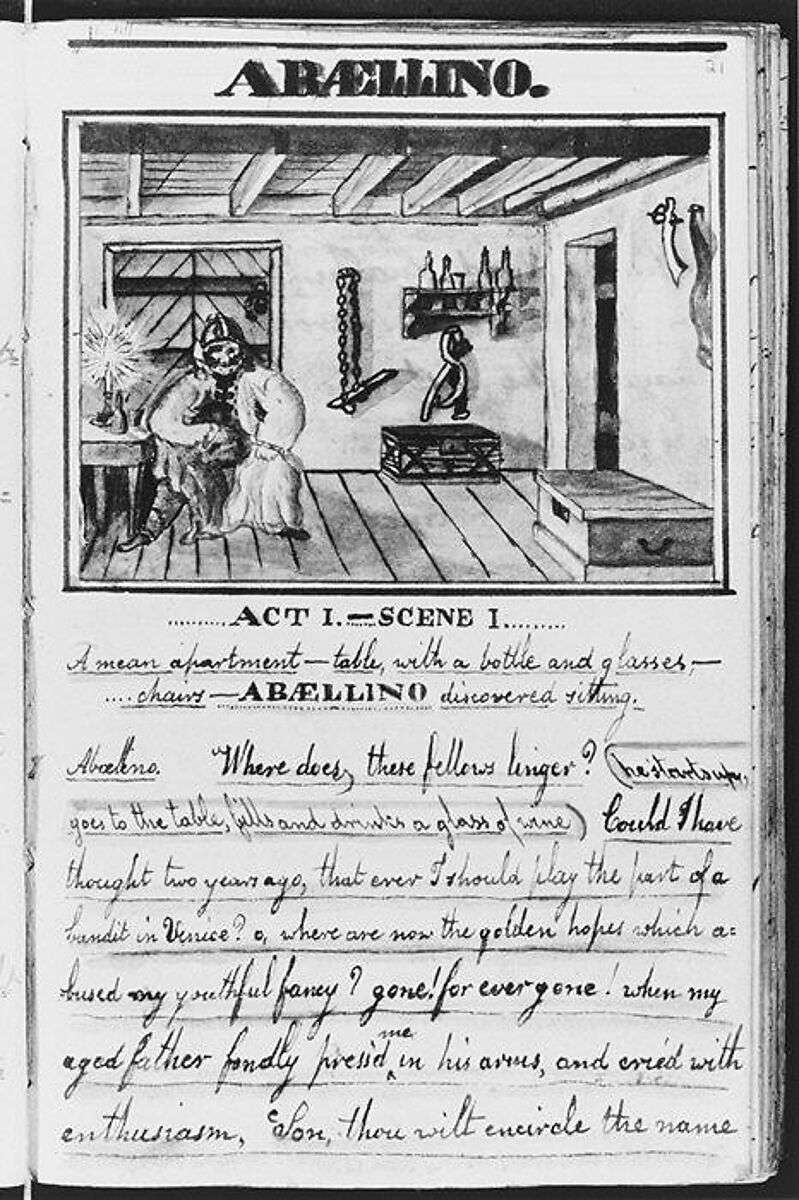 21
ABÆLLINO.
ACT I.—SCENE I.
A mean apartment — table, with a bottle and glasses,—
....chairs — ABÆLLINO discovered sitting.
Abællino. "Where does, these fellows linger? (he starts up,
goes to the table, fills and drinks a glass of wine) Could I have
thought two years ago, that ever I should play the part of a
bandit in Venice? o, where are now the golden hopes which a=
bused my youthful fancy? gone! for ever gone! when my
aged father fondly press'd me in his arms, and cried with
enthusiasm, Son, thou wilt encircle the name